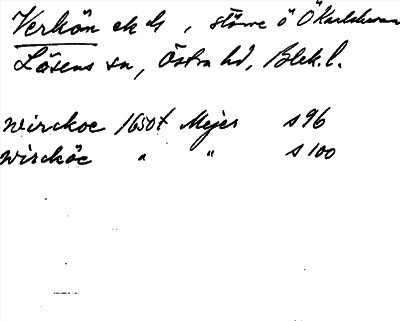 Verkön ek bl , större ö Ö Karlskrona
Lösens sn, Östra hd, Blek. l.
wirckoe 1650t Mejer s 96
wirschöe " " s 100